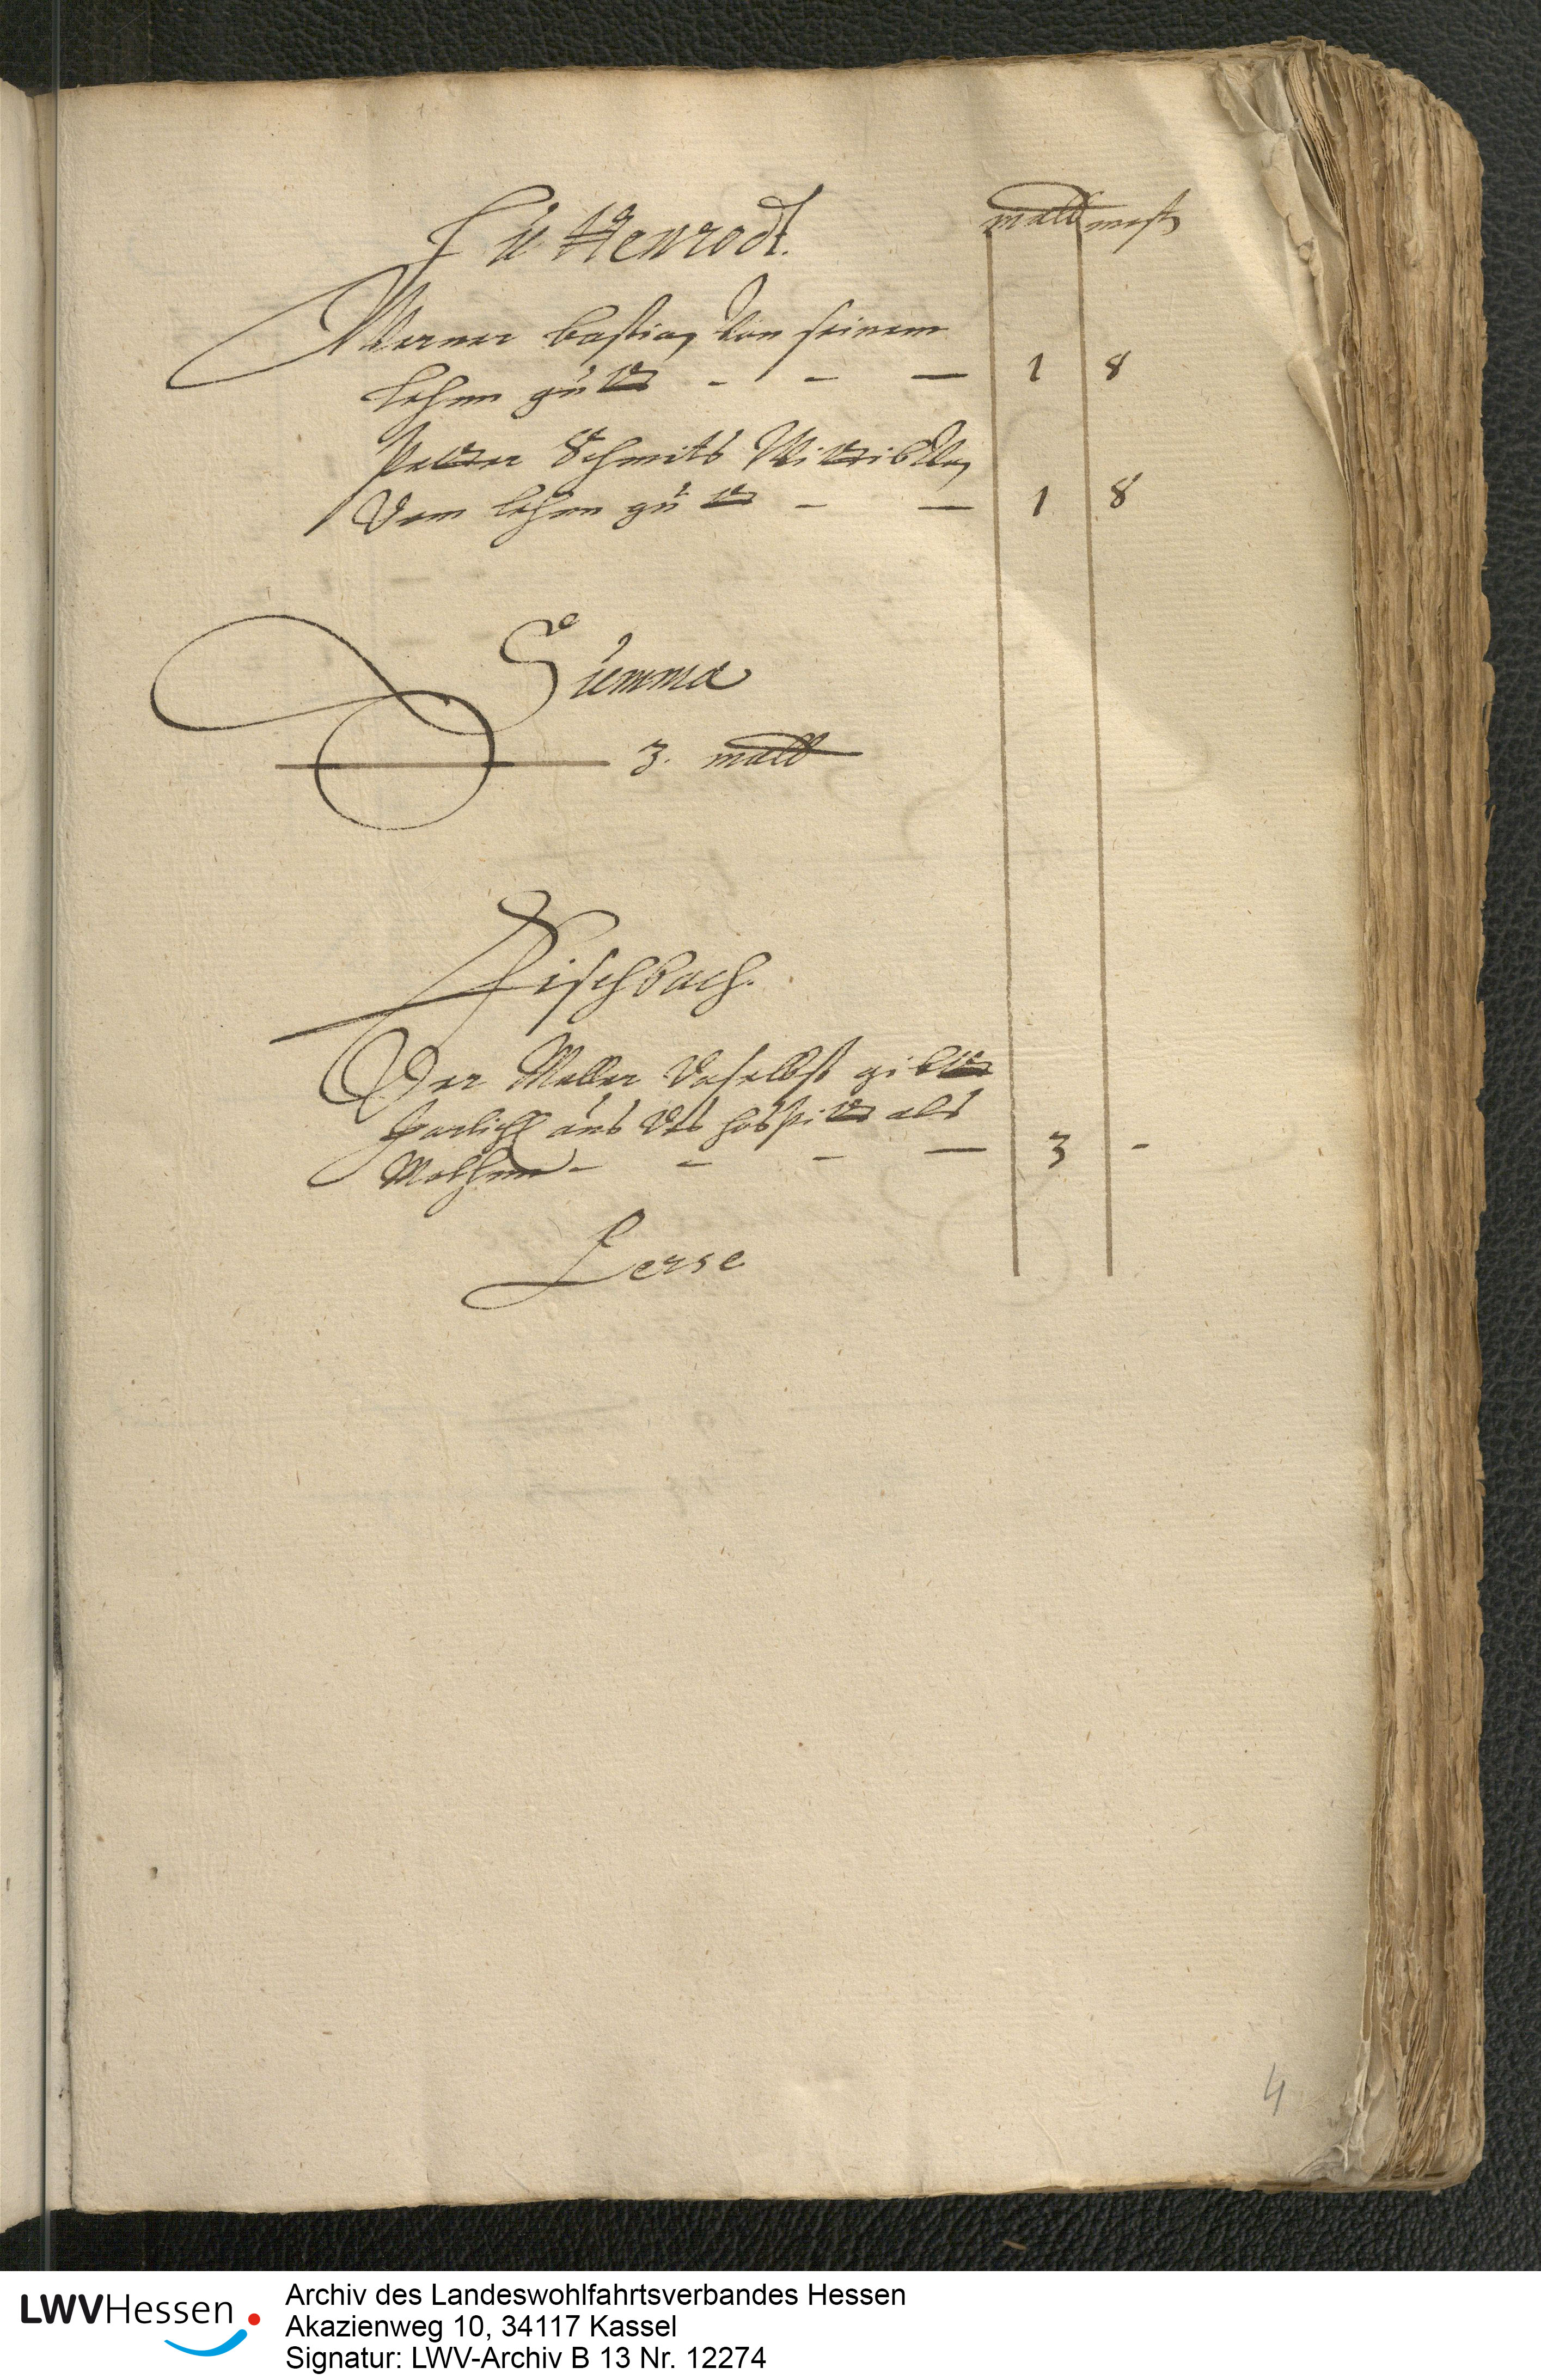 malt mest
Lüttenrodt.
Werner bastian von seinem
lehen gütt - - - 1 8
Petter Schmits Wittibe
Vom lehen gütt - - 1 8
Summa
3. malt
Fischbach.
Der Moller daselbst gibtt
Jarlich aus des hospitals
Molhen - - - - 3 -
Lerse
4
LWVHessen
Archiv des Landeswohlfahrtsverbandes Hessen
Akazienweg 10, 34117 Kassel
Signatur: LWV-Archiv B 13 Nr. 12274